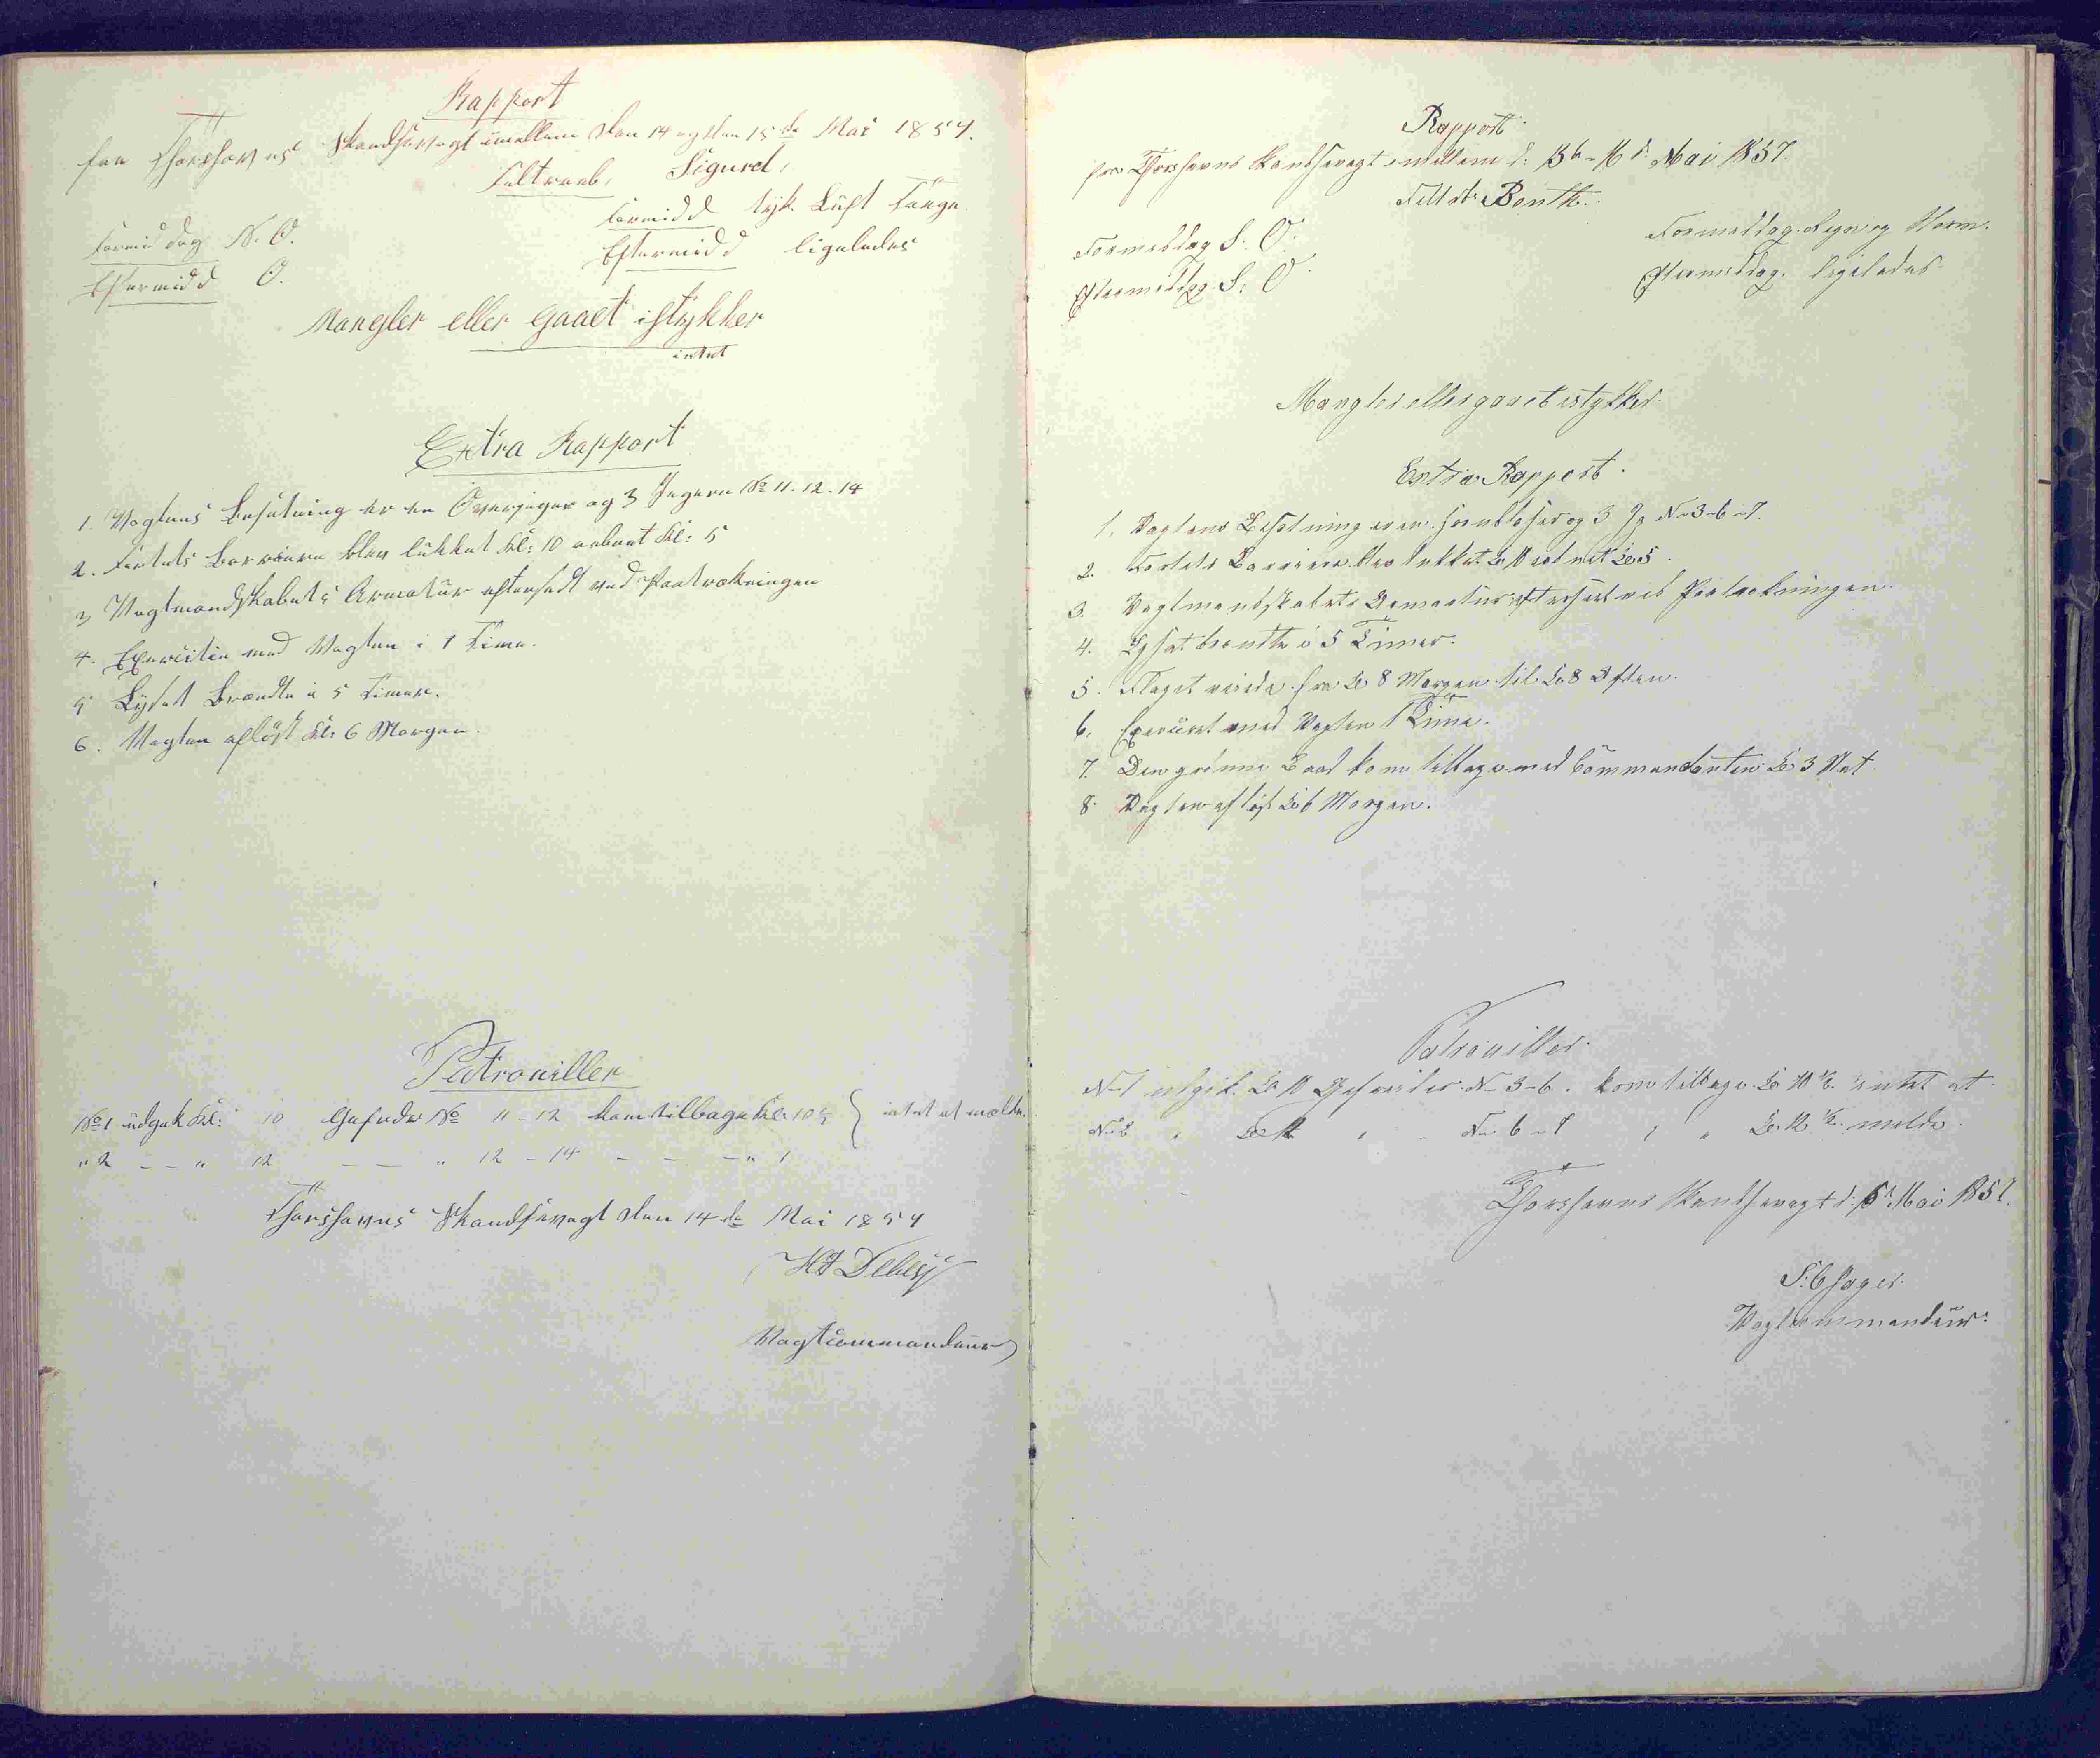 Rapport
fra Thorshavns Skandsevagt imellem den 14 og den 15de Mai 1857.
Feltraab, Sigurd,
Formidd tyk Luft Taage.
Formiddag N. O.
Eftermidd ligeledes
Eftermidd O.
Mangler eller gaaet istykker
intet
Extra Rapport
1. Vagtens Besætning er en Overjæger og 3 Jægere No 11-12-14
2. Fortets Barriere blev lükket Kl: 10 aabnet Kl: 5
3 Vagtmandskabets Armatür efterseet ved Paatrækningen
4. Exercitie med Vagten i 1 Time.
5 Lyset Brændte i 5 Timer.
6. Vagten afløst Kl: 6 Morgen.
Patrouiller
No 1 üdgik Kl: 10 Gefreder No 11-12 kom tilbage Kl: 10½ } intet at melde.
" 2 — — " 12 — — " 12-14 — — — " 1
Thorshavns Skandsevagt den 14de Mai 1857
Debes
Vagtcommandeur
Rapport
fra Thorshavns Skandsevagt imellem d: 15de-16d: Mai 1857.
Feltrb Benth.
Formeddag S: O:
Formeddag. Regn og Storm.
Eftermeddag. S: O
Eftermeddag. ligeledes.
Mangler eller gaaet istykker.
Extra Rapport.
1. Vagtens Besetning er en Hornblæser og 3 Jg N-3-6-7.
2. Fortets Barriere blev lukket Kl 10 aabnet Kl 5.
3. Vagtmandskabets Armaatur efterseet ved Paatrekningen.
4. Lyset brendte i 5 Timer.
5. Flaget vaiede fra Kl 8 Morgen til Kl 8 Aften.
6. Exersiset med Vagten 1 Time.
7. Den grønne Baad kom tilbage med Commandanten Kl 3 Nat.
8. Vagten afløst Kl 6 Morgen.
Patrouiller.
N-1 udgik. Kl 10 Gefreider N-3-6. kom tilbage Kl 10 ½. intet at
N-2 " Kl 12 " " N-6-7 " " Kl 12 ½. melde.
Thorshavns Skandsevagt d: 15d Mai 1857.
Vagtcommandeur.